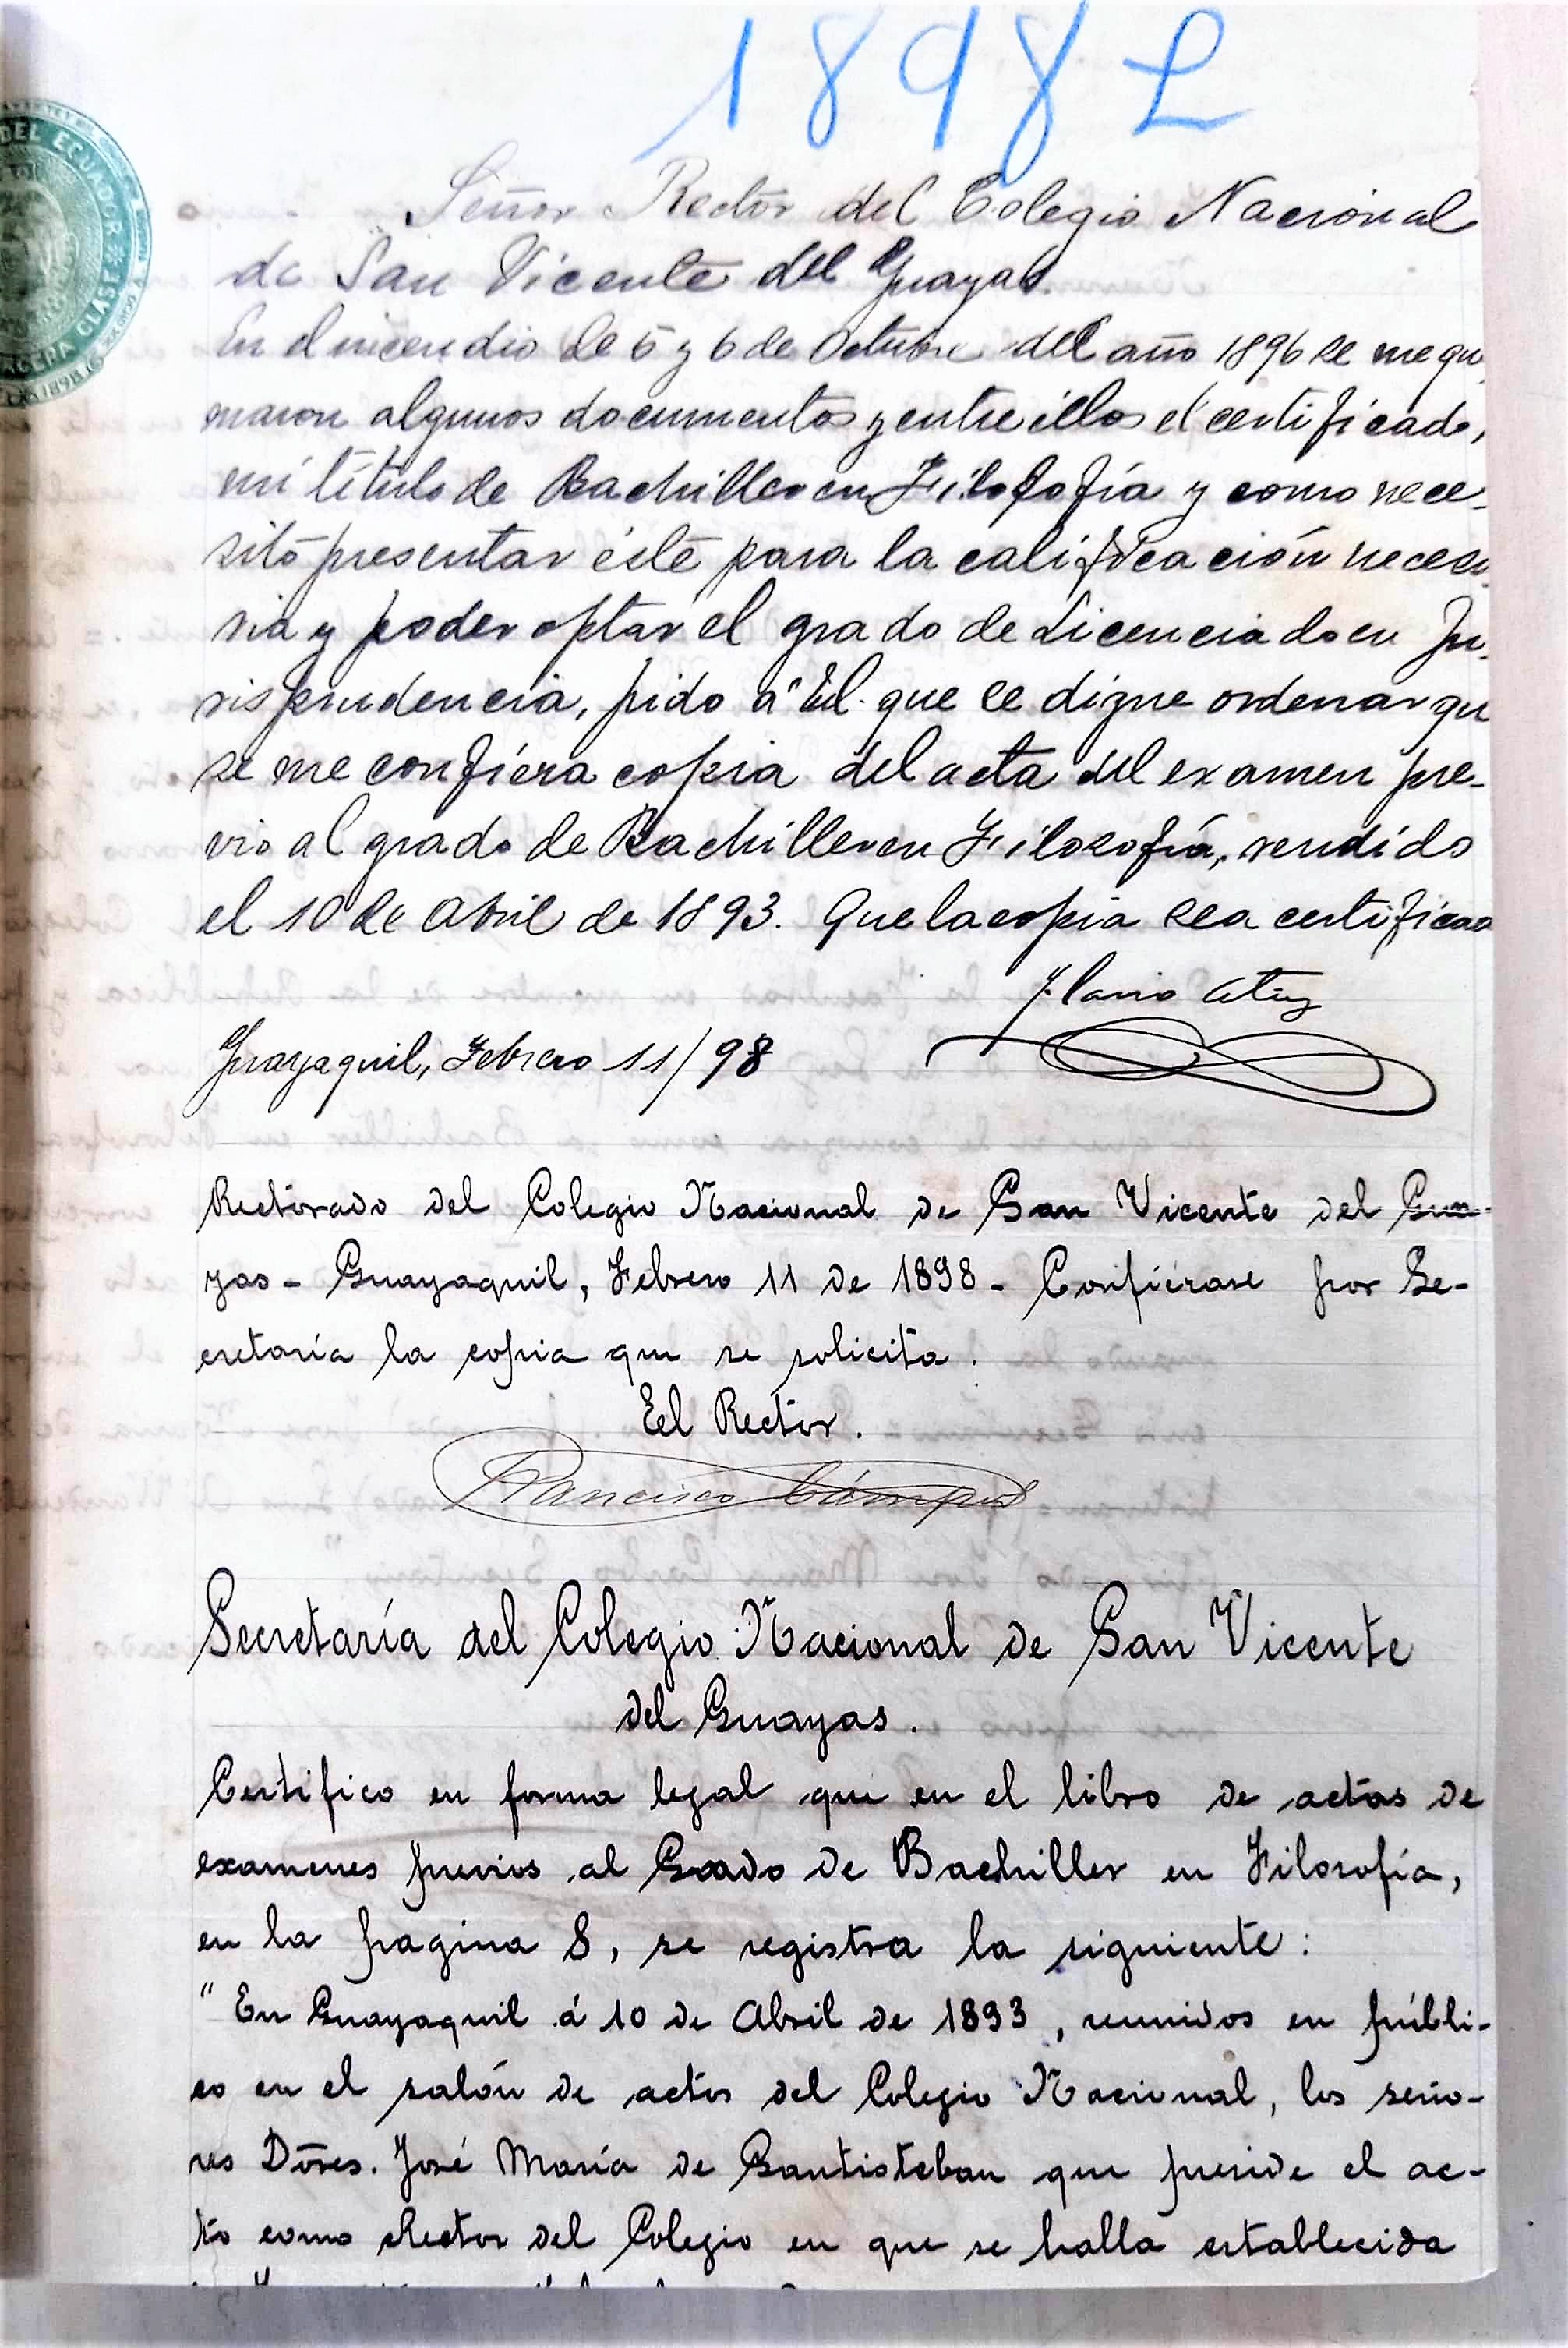 1898 L
DEL ECUADOR
TERCERA CLASE
1898
Señor Rector del Colegio Nacional
de San Vicente del Guayas.
En el incendio de 5 y 6 de Octubre del año 1896 se me que
maron algunos documentos y entre ellos el certificado,
mi título de Bachiller en Filosofía y como nece-
sito presentar éste para la calificación necesa
ria y poder optar el grado de Licenciado en Ju-
risprudencia, pido á Ud. que se digne ordenar qu
se me confiera copia del acta del examen pre-
vio al grado de Bachiller en Filosofía, rendido
el 10 de Abril de 1893. Que la copia sea certificad
Flavio
Guayaquil, Febrero 11/98
Rectorado del Colegio Nacional de San Vicente del Gua-
yas - Guayaquil, Febrero 11 de 1898 - Confiérase por Se-
cretaría la copia que se solicita.
Eel Rector.
Francisco Cámpos
Secretaría del Colegio Nacional de San Vicente
del Guayas.
Certifico en forma legal que en el libro de actas de
examenes previos al Grado de Bachiller en Filosofía,
en la pagina 8, se registra la siguiente:
"En Guayaquil á 10 de Abril de 1893, reunidos en públi-
co en el salón de actos del Colegio Nacional, los seño-
res Dōres. José María de Santisteban que preside el ac-
to como Rector del Colegio en que se halla establecida